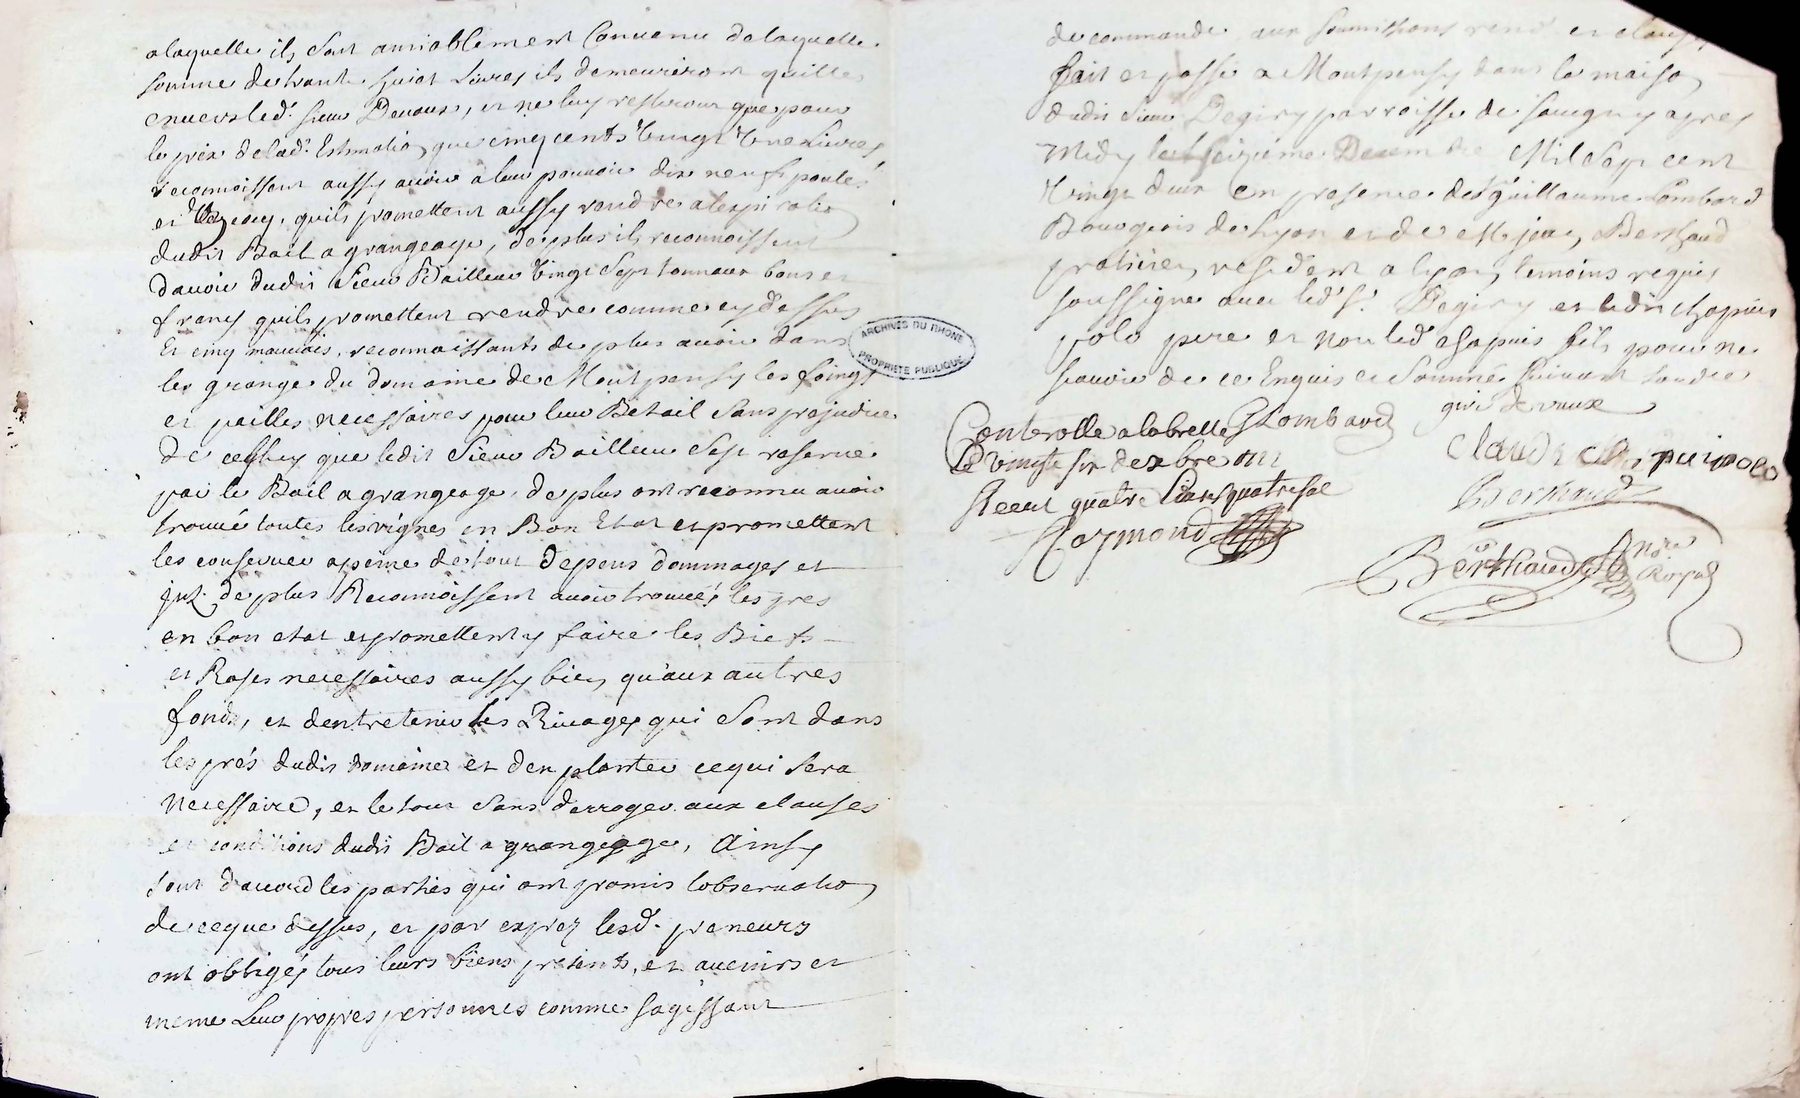 a laquelle ils sont amiablement Convenu de laquelle
somme de trante huiot Livres ils demeureront quittes
envers led. sieur Devaux, et ne luy resteront que pour
le prix de lad. Estimation que cinq cents vingt une Livres
reconnoissent aussy avoir a leur pouvoir dix neufs poules
et, quils promettent aussy rendre a lexpiration
dudit Bail a grangeage, de plus ils reconnoissent
davoir dudit Sieur Bailleur vingt Sept tonneaux bons et
francs quils promettent rendre comme cy dessus
Et cinq mauvais, reconnoissants de plus avoir dans
les granges du domaine de Montpensy les foings
et pailles necessaires pour leur Bétail sans prejudice
de ceux que ledit Sieur Bailleur Sest reservé
par le Bail a grangeage, de plus ont reconnu avoir
trouvé toutes les vignes en Bon Etat et promettent
les conserver a peine de tout depens dommages et
jnt. de plus Reconnoissent avoir trouvés les prés
en bon etat et promettent y faire les Biefs
et Rases necessaires aussy bien qu'aux autres
fonds, et dentretenir les Rivages qui Sont dans
les prés dudit domaine et den planter ce qui Sera
Necessaire, et le tout Sans derroger aux clauses
et conditions dudit Bail a grangeage, Ainsy
sont daccord les parties qui ont promis lobservation
de ce que dessus, et par exprez lesd. preneurs
ont obbligés tous leurs biens présents, et avenirs et
meme Leur propres personnes comme sagissant
de commande aux soumissions et clauses
fait et passé a Montpensy dans la maison
dudit Sieur Degiry parroisse de Savigny apres
Midy le seizieme Decembre Mil Sept cent
Vingt deux En presence de Sr. Guillaume Lombard
Bourgeois de Lyon et de Me jean Berthaud
praticien resident a Lyon temoins requis
soussigné avec led. Sr. Degiry et ledit Chapuis
polo pere et non led. Chapuis fils pour ne
scavoir de ce Enquis et Sommé Suivant lordre
Controllé a labrelle GLombard
giri devaux
Le vingt six dexbre 1722
Claude Chapuis polo
Receu quatre Livres quatre sol
Berthaud
Raymond
Berthaud Nore Royal
ARCHIVES DU RHONE
PROPRIÉTÉ PUBLIQUE